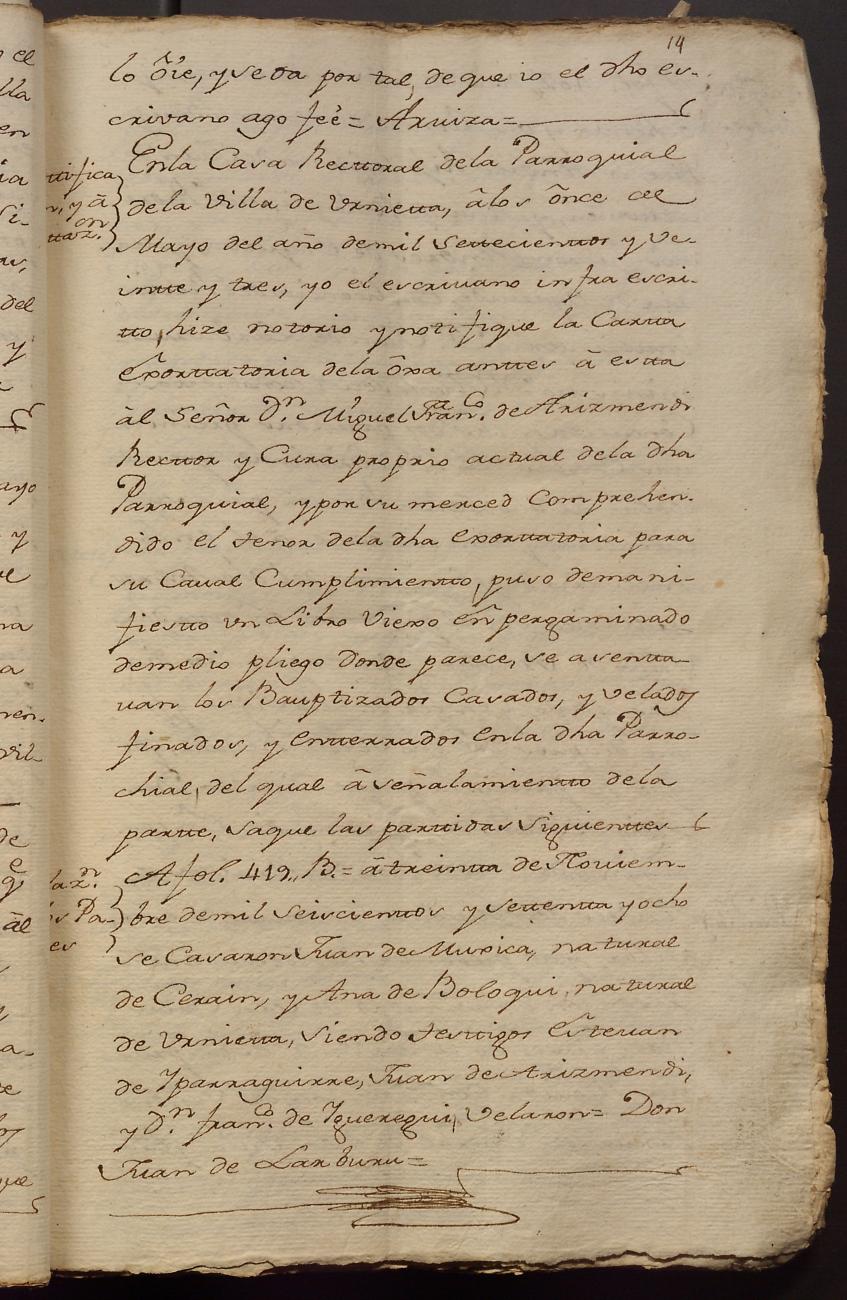 14
lo ôie, y se da por tal, de que io el dho es-
crivano ago feè = Aruiza =
En la Casa Recttoral de la Parroquial
de la Villa de Vrnietta, â los ônce de
Mayo del año de mil Settecienttos y Ve-
intte y tres, yo el escriuano infra escri-
tto, hize notorio y notifique la Cartta
Exorttatoria de la ôxa anttes â estta
âl Señor Dn. Miguel Franco. de Arizmendi
Recttor y Cura proprio actual de la dha
Parroquial, y por su merced Comprehen-
dido el tenor de la dha Exorttatoria para
su Caual Cumplimientto, puso de mani-
fiestto vn Libro Viexo en pergaminado
de medio pliego donde parece, se a sentta-
uan los Bauptizados Casados, y velados
finados, y entterrados en la dha Parro-
chial, del qual â señalamientto de la
partte, saque las parttidas siguienttes
A fol. 419. B. = â treintta de Noviem-
bre de mil Seiscienttos y settentta y ocho
se Casaron Juan de Muxica, natural
de Cerain, y Ana de Boloqui, natural
de Vrnietta, Siendo testtigos Esteuan
de Yparraguirre, Juan de Arizmendi,
y Dn. franco. de Ygueregui, Velaron = Don
Juan de Larburu =